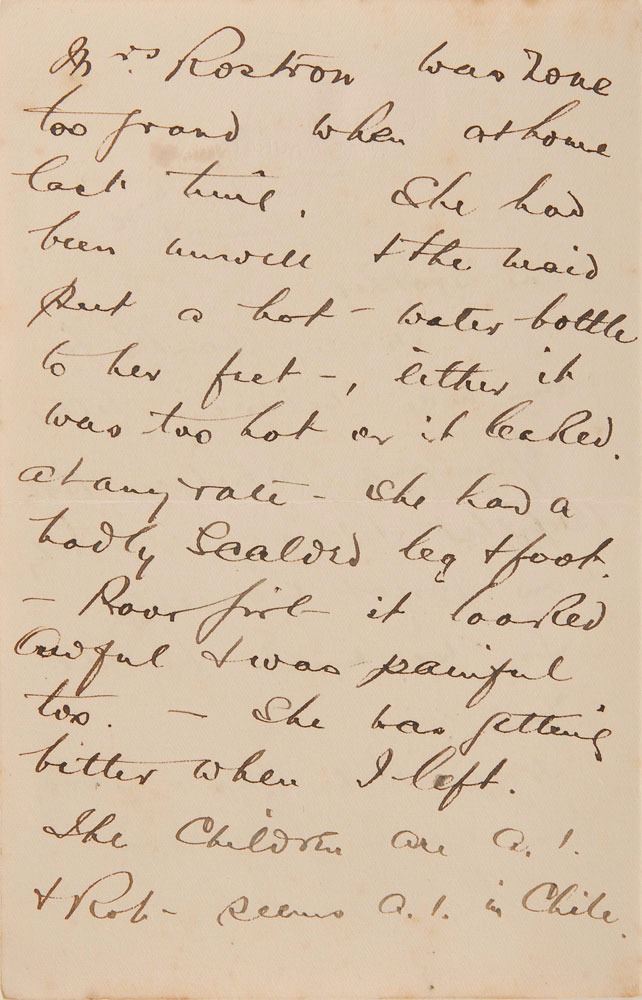 Mrs Rostron was none
too grand when at home
last time. She had
been unwell & the maid
put a hot-water bottle
to her feet -, either it
was too hot or it leaked.
at any rate - she had a
badly scalded leg & foot.
- Poor girl it looked
awful & was painful
too. - She was getting
better when I left.
The Children are A.1.
& Rob - seems A.1. in Chile.